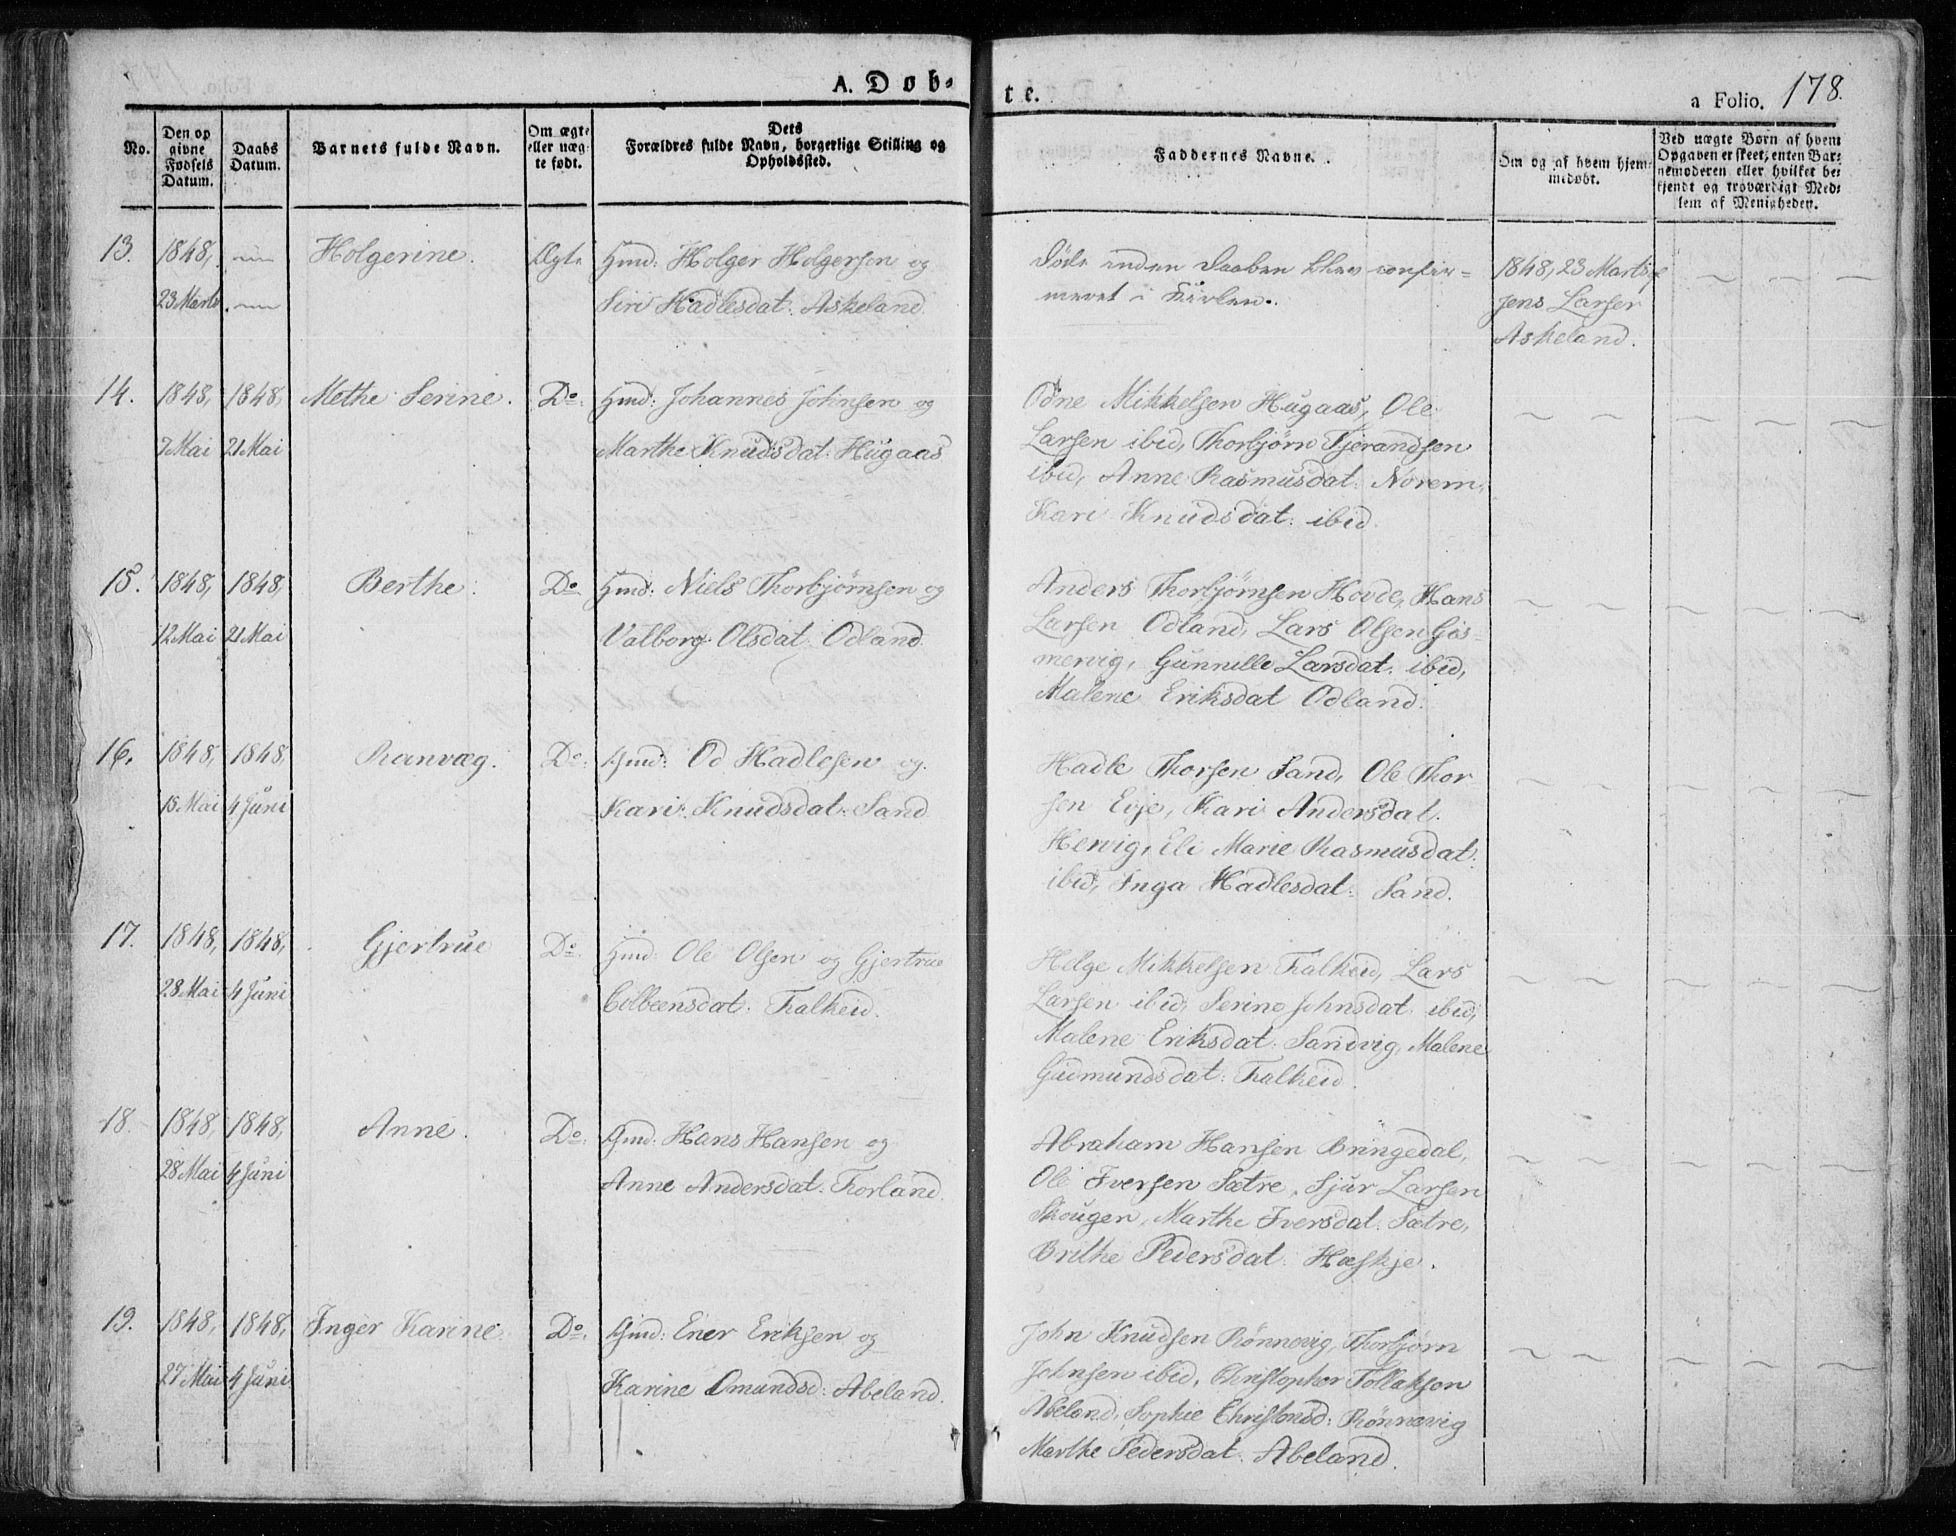 A. Døb-te.
a Folio. 178.
No.
Den opgivne Fødsels Datum.
Daabs Datum.
Barnets fulde Navn.
Om ægte eller uægte født.
Dets Forældres fulde Navn, borgerlige Stilling og Opholdssted.
Faddernes Navne.
Om og af hvem hjemmedøbt.
Ved uægte Børn af hvem Opgaven er skeet, enten Barnemoderen eller hvilket bekjendt og troværdigt Medlem af Menigheden.
13. 1848, Holgerine. Ægte Gmd: Holger Holgersen og
23 Marts Siri Hadlesdat: Askeland.
Døde inden Daaben blev confir=
meret i Kirken.
1848, 23 Marts af
Jens Larsen
Askeland.
14. 1848, 1848, Methe Serine. Do. Gmd: Johannes Johnsen og
7 Mai 21 Mai Marthe Knudsdat: Hugaas
Odne Mikkelsen Hugaas, Ole
Larsen ibid, Thorbjørn Tjerandsen
ibid, Anne Rasmusdat: Norem,
Kari Knudsdat: ibid.
15. 1848, 1848, Berthe. Do. Gmd: Niels Thorbjørnsen og
12 Mai 21 Mai Valborg Olsdat: Odland.
Anders Thorbjørnsen Hovde, Hans
Larsen Odland, Lars Olsen Gis=
mervig, Gunnille Larsdat: ibid,
Malene Eriksdat Odland.
16. 1848, 1848, Ranvæg. Do. Gmd: Od Hadlesen og
15 Mai 4 Juni Kari Knudsdat: Sand.
Hadle Thorsen Sand, Ole Thor
sen Evje, Kari Andersdat.
Hervig, Eli Marie Rasmusdat:
ibid, Inga Hadlesdat: Sand.
17. 1848, 1848, Gjertrue Do. Gmd: Ole Olsen og Gjertrue
28 Mai 4 Juni Colbeensdat: Falkeid.
Helge Mikkelsen Falkeid, Lars
Larsen ibid, Serine Johnsdat: ibid,
Malene Eriksdat: Sandvig, Malene
Gudmundsdat: Falkeid.
18. 1848, 1848, Anne. Do. Gmd: Hans Hansen og
28 Mai 4 Juni Anne Andersdat: Forland.
Abraham Hansen Bringedal,
Ole Iversen Sætre, Sjur Larsen
Skougen, Marthe Iversdat: Sætre,
Brithe Pedersdat: Hæskje.
19. 1848, 1848, Inger Karine. Do. Gmd: Ener Eriksen og
27 Mai 4 Juni Karine Omundsd: Abeland.
John Knudsen Rønnevig, Thorbjørn
Johnsen ibid, Christopher Tollaksen
Abeland, Sophie Christensd: Rønnevig
Marthe Pedersdat: Abeland.